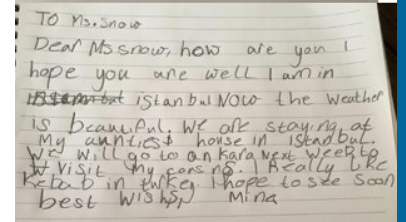 TO Ms. Snow
Dear Ms snow, how are you I
hope you are well I am in
istanbul Now the weather
is beautiful. We are staying at
My aunties house in istanbul.
We will go to ankara Next week to
visit my cosins. I Really like
Kebab in turkey. I hope to see soon
best wishs, Mina